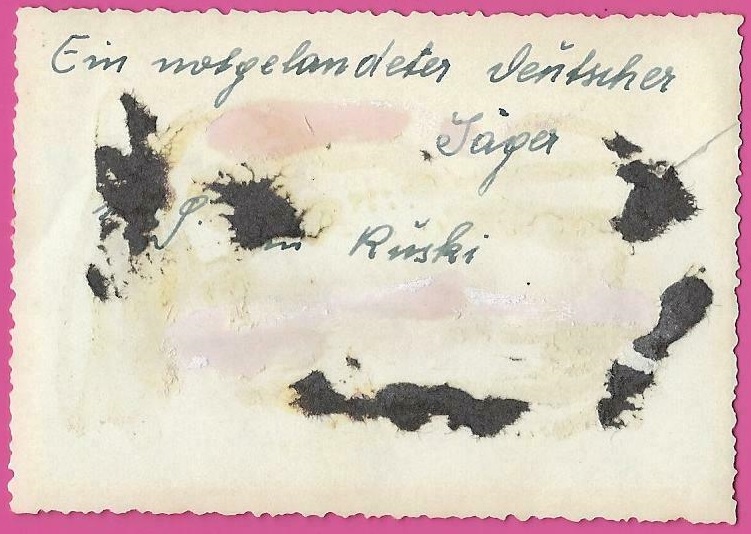 Ein notgelandeter deutscher
Jäger
Ruski